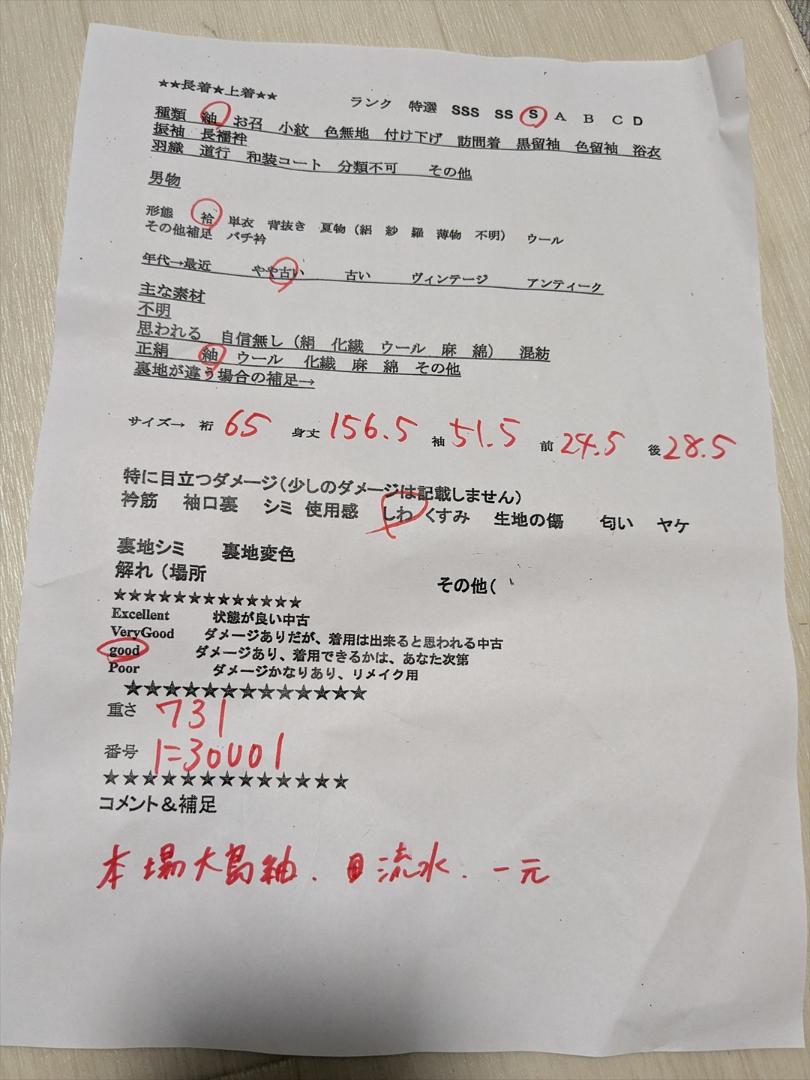 ★★長着★上着★★
ランク 特選 SSS SS S A B C D
種類 紬 お召 小紋 色無地 付け下げ 訪問着 黒留袖 色留袖 浴衣
振袖 長襦袢
羽織 道行 和装コート 分類不可 その他
男物
形態 袷 単衣 背抜き 夏物（絽 紗 羅 薄物 不明） ウール
その他補足 バチ衿
年代→最近 やや古い 古い ヴィンテージ アンティーク
主な素材
不明
思われる 自信無し（絹 化繊 ウール 麻 綿） 混紡
正絹 紬 ウール 化繊 麻 綿 その他
裏地が違う場合の補足→
サイズ→ 裄 65 身丈 156.5 袖 51.5 前 24.5 後 28.5
特に目立つダメージ（少しのダメージは記載しません）
衿筋 袖口裏 シミ 使用感 しわ くすみ 生地の傷 匂い ヤケ
裏地シミ 裏地変色
解れ（場所 その他（
★★★★★★★★★★★★★
Excellent 状態が良い中古
VeryGood ダメージありだが、着用は出来ると思われる中古
good ダメージあり、着用できるかは、あなた次第
Poor ダメージかなりあり、リメイク用
★★★★★★★★★★★★★
重さ 731
番号 に30001
★★★★★★★★★★★★★
コメント＆補足
本場大島紬. 流水. 一元